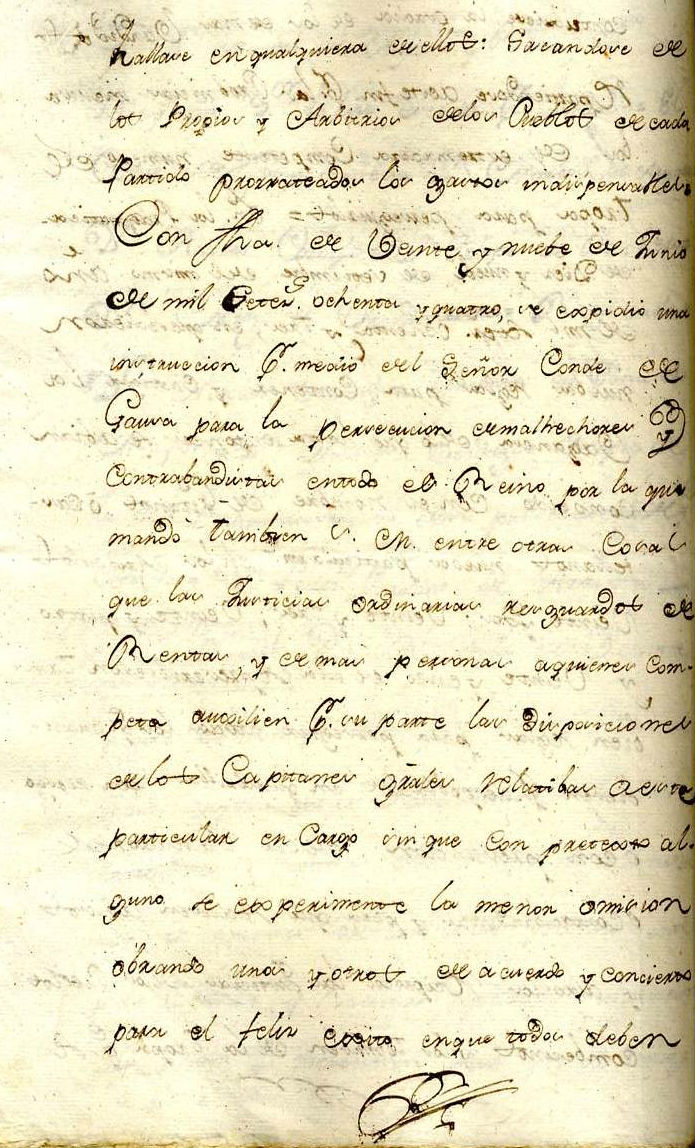 hallase en qualquiera de ellos: Sacandose de
los Propios y Arbitrios de los Pueblos de cada
Partido prorrateados los gastos indispensables.
Con fha. de Veinte y nuebe de Junio
de mil Seters. ochenta y quatro, se expidio una
instruccion Pr. medio del Señor Conde de
Gausa para la persecucion de malhechores y
Contrabandistas en todo el Reino por la que
mandó tambien S. M. entre otras Cosas
que las Justicias ordinarias resguardos de
Rentas, y demas personas a quienes Com-
peta auxilien Pr. su parte las disposiciones
de los Capitanes grãles relatibas a este
particular en Cargo sin que con pretexto al-
guno se experimente la menor omision
obrando unos y otros de acuerdo y concierto
para el feliz exsito en que todos deben